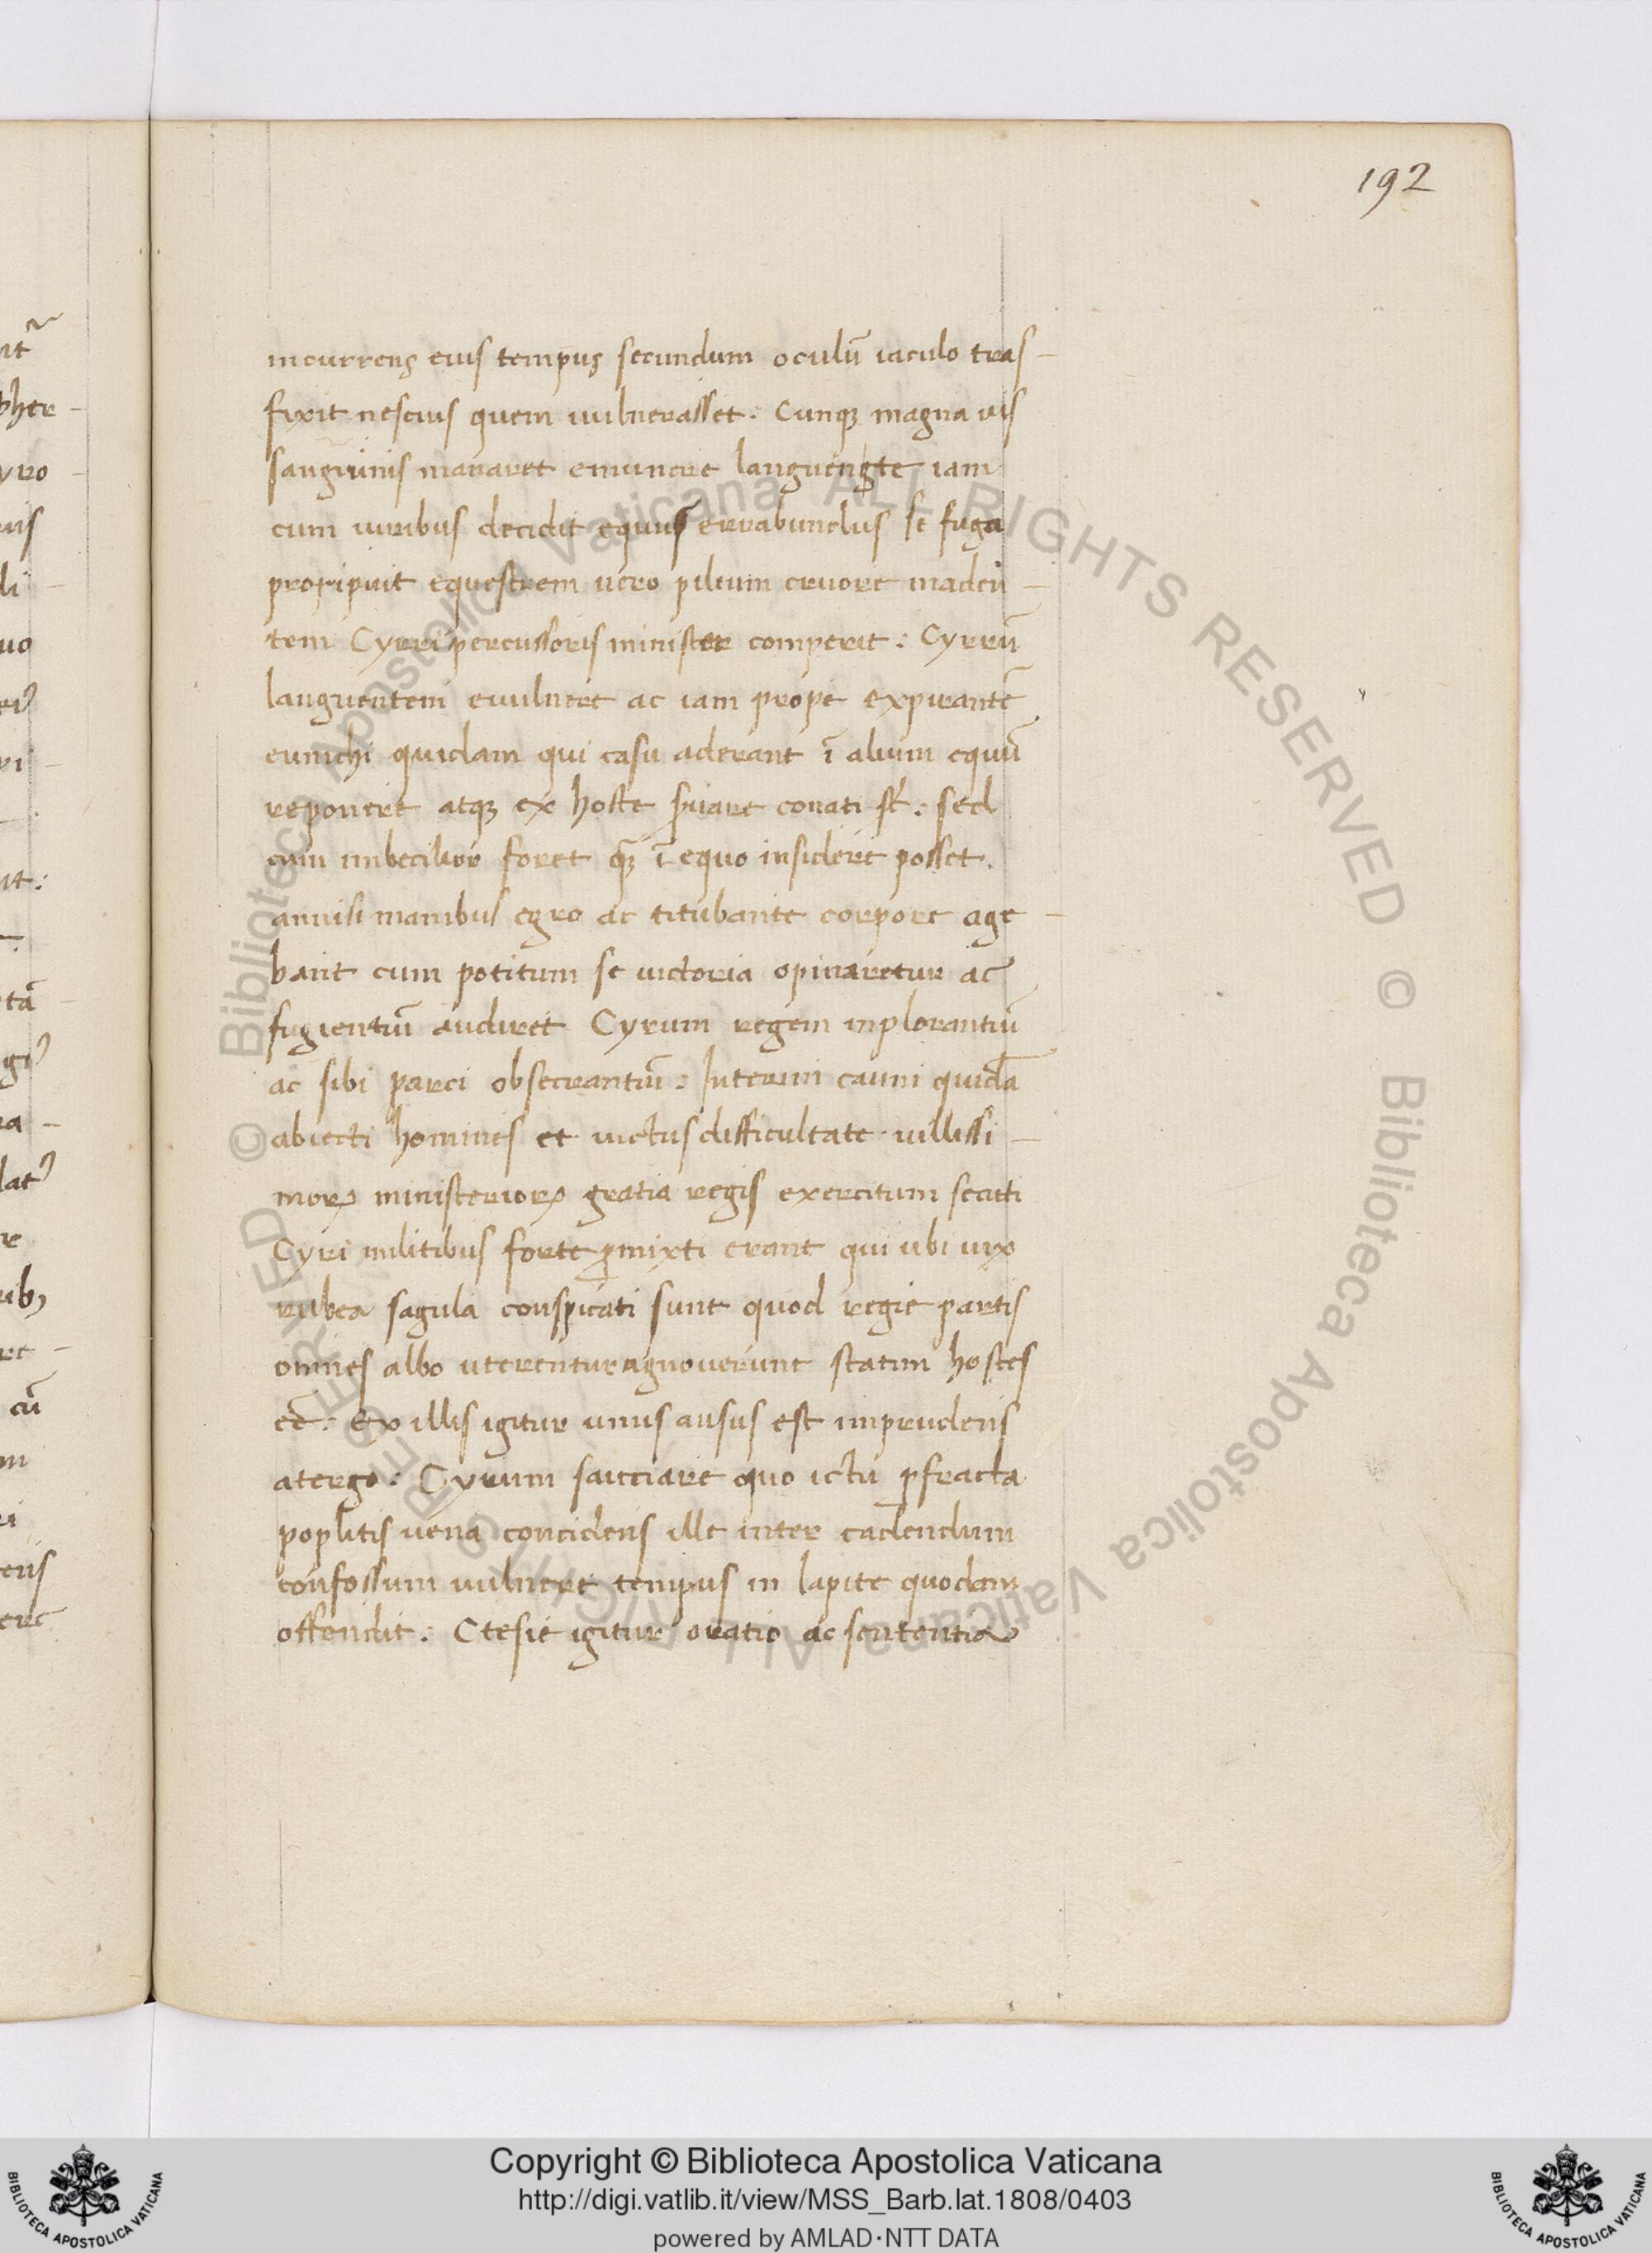 192
incurrens eius tempus secundum oculū iaculo tras-
fixit nescius quem uulnerasset. Cunqꝫ magna uis
sanguinis manaret euunere languente iam
cum uiribus decidit equus errabundus se fuga
proripuit equestrem uero pileum cruore maden-
tem Cyrri percussoris minister comperit: Cyrrū
languentem euulnere ac iam prope expirantē
eunuchi quidam qui casu aderant ī alium equū
reponere atqꝫ ex hoste ẜuare conati st̄: sed
cum imbecilior foret qꝫ ī equo insidere posset.
annisi manibus egro ac titubante corpore age-
bant cum potitum se uictoria opinaretur ac
fugientiū audiret Cyrum regem inplorantiū
ac sibi parci obsecrantiū: Interim cauni quidā
abiecti homines et uictus difficultate uilissi-
moꝝ ministerioꝝ gratia regis exercitum secuti
Cyri militibus forte ꝑmixti erant qui ubi uix
rubea sagula conspicati sunt quod regie partis
omnes albo uterentur agnouerunt statim hostes
eē: Ex illis igitur unus ausus est imprudens
atergo: Cyrum sauciare quo ictu ꝑfracta
poplitis uena concidens ille inter cadendum
confossum uulnere tempus in lapite quodam
offendit: Ctesie igitur oratio ac sententia
© Biblioteca Apostolica Vaticana ALL RIGHTS RESERVED © Biblioteca Apostolica Vaticana ALL RIGHTS RESERVED
Copyright © Biblioteca Apostolica Vaticana
http://digi.vatlib.it/view/MSS_Barb.lat.1808/0403
powered by AMLAD·NTT DATA
BIBLIOTECA APOSTOLICA VATICANA
BIBLIOTECA APOSTOLICA VATICANA